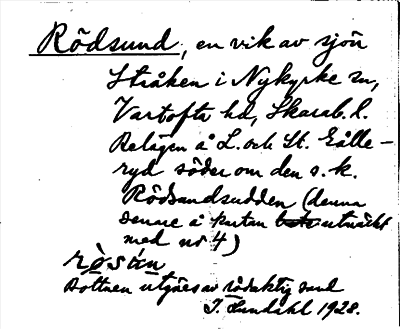 Rödsund, en vik av sjön
Stråken i Nykyrke sn,
Vartofta hd, Skarab. l.
Belägen å L. och St. Gålle-
ryd söder om den s.k.
Rödsandsudden (denna
senare å kartan utmärkt
med nr 4)
Bottnen utgöres av rödaktig sand
J. Lundahl 1928.